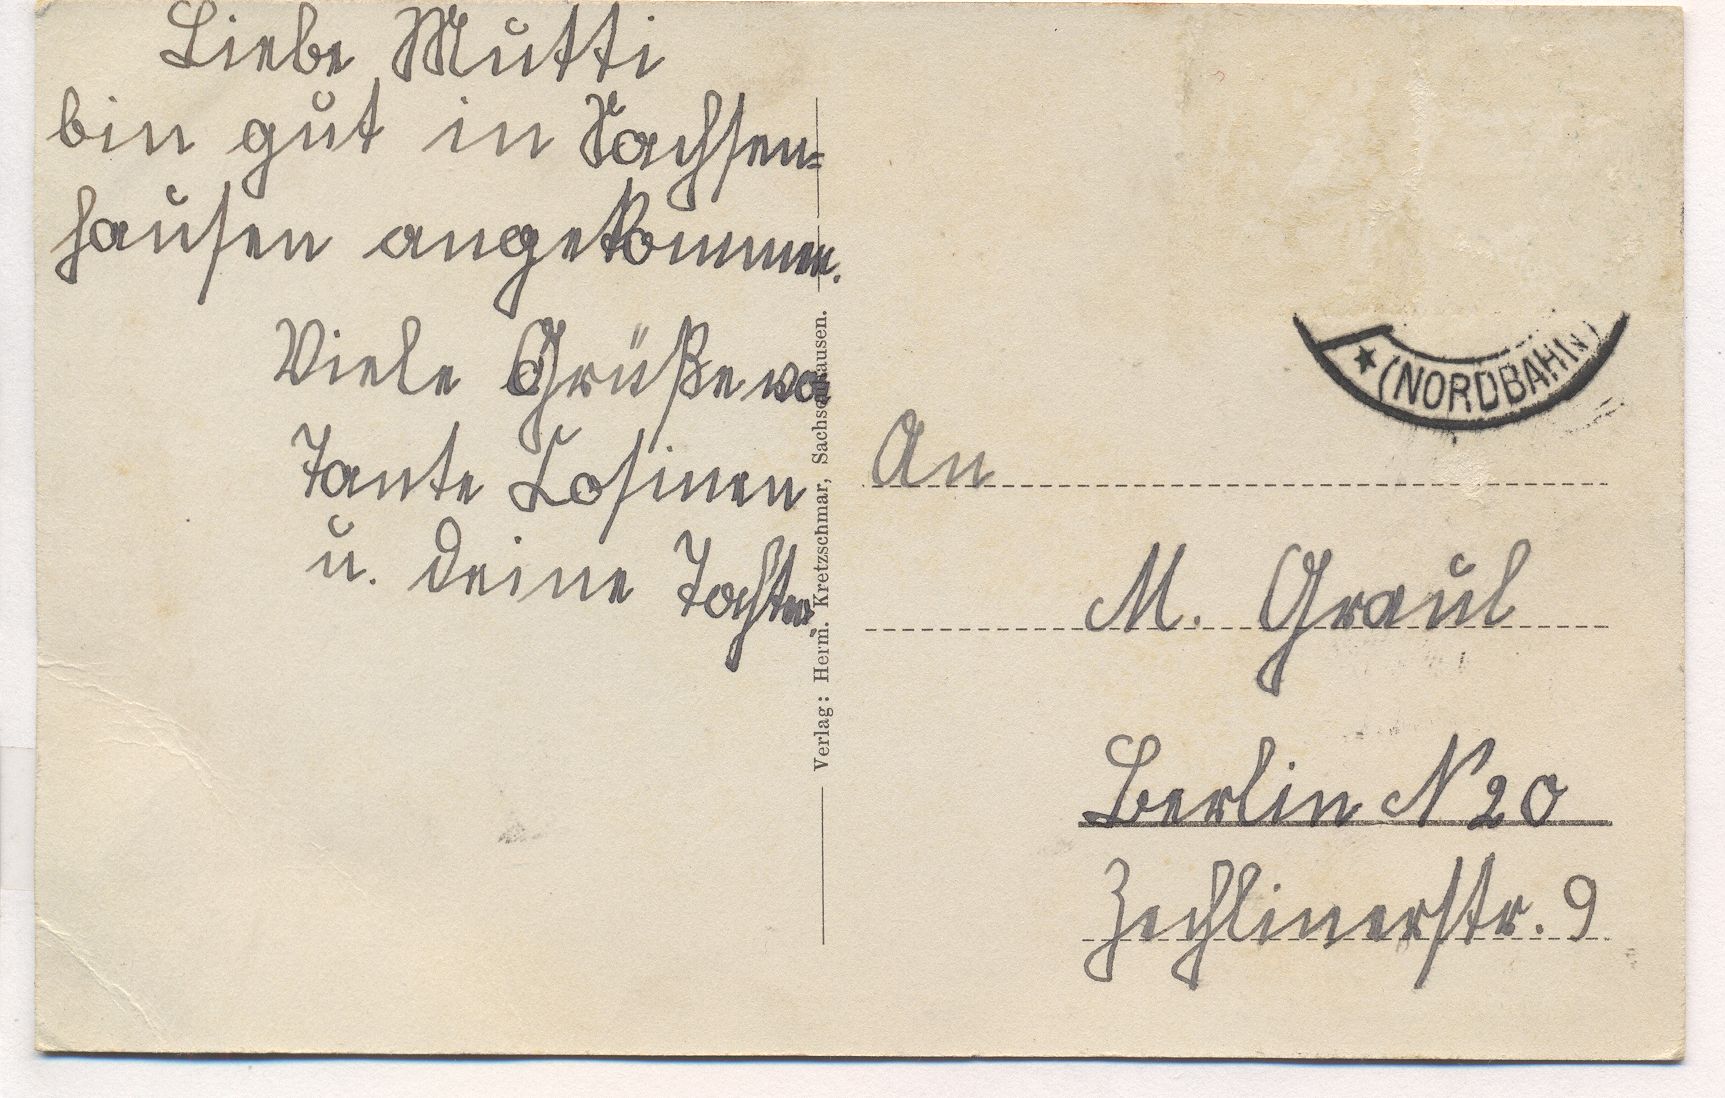 Liebe Mutti
bin gut in Sachsen=
hausen angekommen.
Viele Grüße von
Tante Losinen
u. deine Tochter.
Verlag: Herm. Kretzschmar, Sachsenhausen.
* (NORDBAHN)
An
M. Graul
Berlin N 20
Zechlinerstr. 9